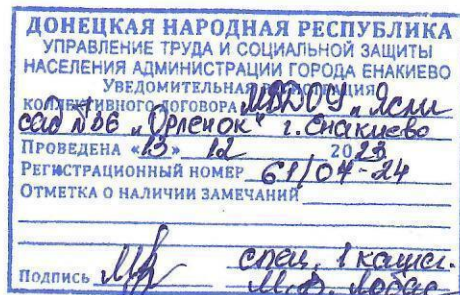 ДОНЕЦКАЯ НАРОДНАЯ РЕСПУБЛИКА
УПРАВЛЕНИЕ ТРУДА И СОЦИАЛЬНОЙ ЗАЩИТЫ
НАСЕЛЕНИЯ АДМИНИСТРАЦИИ ГОРОДА ЕНАКИЕВО
УВЕДОМИТЕЛЬНАЯ РЕГИСТРАЦИЯ
КОЛЛЕКТИВНОГО ДОГОВОРА МБДОУ „Ясли
сад №36 „Орленок" г. Енакиево
ПРОВЕДЕНА «13» 12 2023
РЕГИСТРАЦИОННЫЙ НОМЕР 61/04-24
ОТМЕТКА О НАЛИЧИИ ЗАМЕЧАНИЙ
спец. 1 катег.
ПОДПИСЬ М.В. Лобас